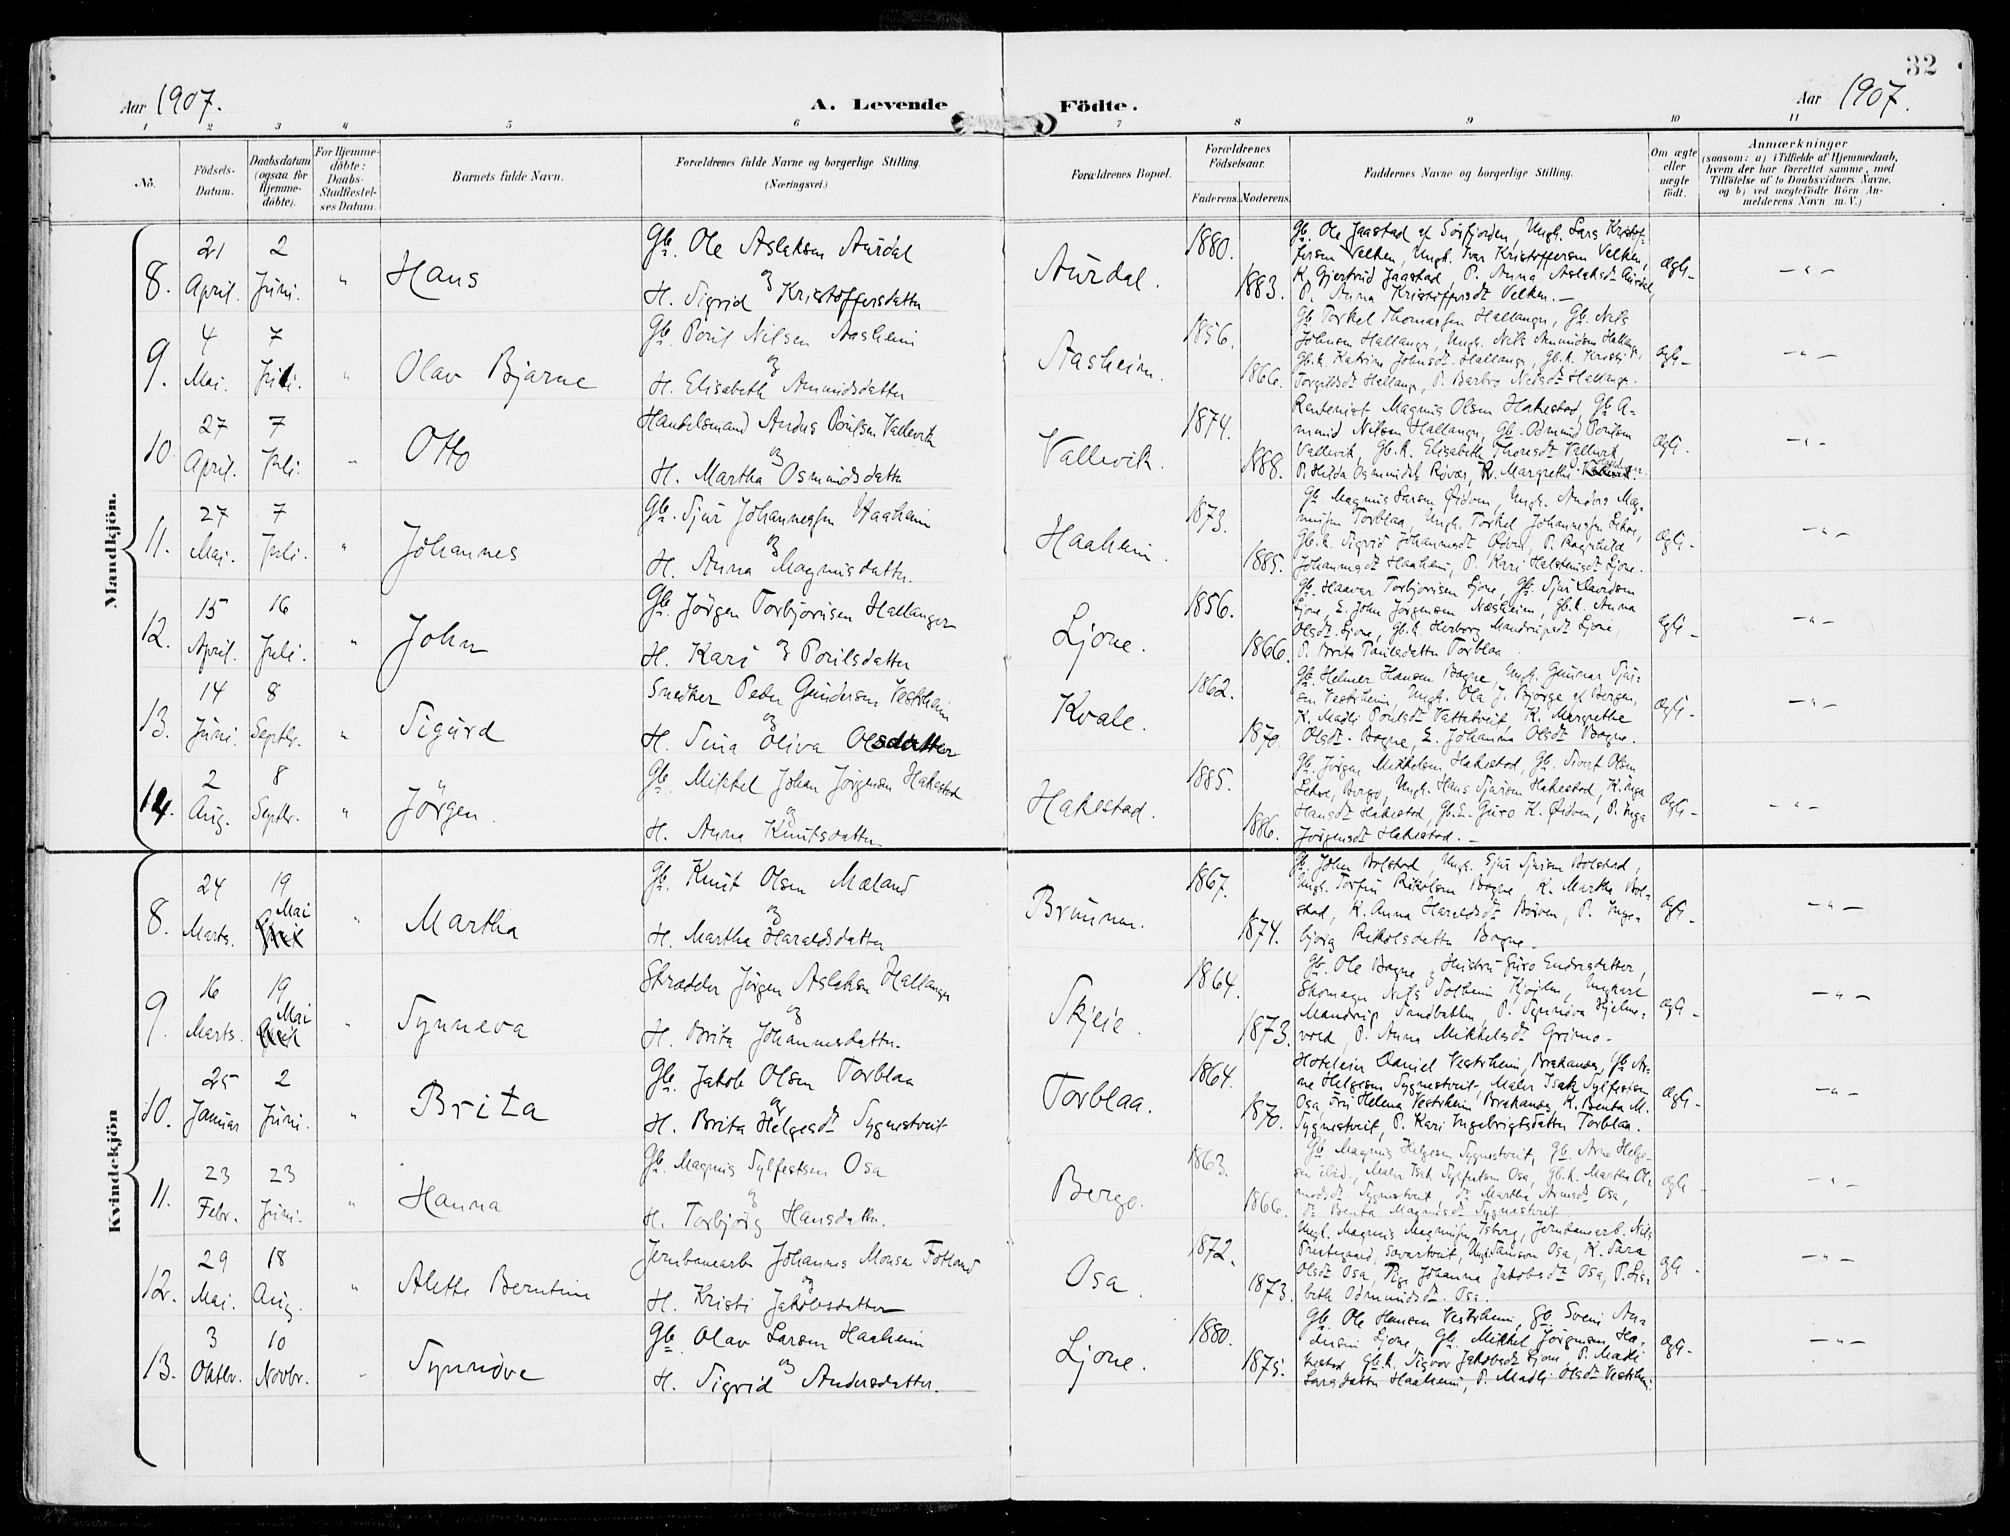 32
Aar 1907.
A. Levende Födte.
Aar 1907.
1 2 3 4 5 6 7 8 9 10 11
No.
Födsels-
Datum.
Daabsdatum
(ogsaa for
Hjemme-
döbte).
For Hjemme-
döbte:
Daabs-
Stadfæstel-
ses Datum.
Barnets fulde Navn.
Forældrenes fulde Navne og borgerlige Stilling.
(Næringsvei.)
Forældrenes Bopæl.
Forældrenes
Födselsaar.
Faderens. Moderens.
Faddernes Navne og borgerlige Stilling.
Om ægte
eller
uægte
födt.
Anmærkninger
(saasom: a) i Tilfælde af Hjemmedaab,
hvem der har forrettet samme, med
Tilföielse af to Daabsvidners Navne,
og b) ved uægtefödte Börn An-
melderens Navn m. V.)
Mandkjön.
8. 21 April. 2 Juni. " Hans
Gb. Ole Aslaksen Aurdal
og
H. Sigrid Kristoffersdatter
Aurdal. 1880. 1883.
Gb. Ole Jaastad af Sörfjorden, Ungk. Lars Kristof-
fersen Velken, Ungk. Ivar Kristoffersen Velken,
K. Gjertrud Jaastad, P. Anna Aslaksdt. Aurdal,
P. Anna Kristoffersdt Velken. -
ægte - - " -
9. 4 Mai. 7 Juli. " Olav Bjarne
Gb. Poul Nilsen Aasheim
og
H. Elisabeth Amundsdatter
Aasheim. 1856. 1866.
Gb. Torkel Thomassen Hallanger, Gb. Nils
Johnsen Hallanger, Ungk. Nils Amundsen Hallang.,
Gb.k. Katrine Johnsdt. Hallanger, Gb.k. Kristi
Torgilsdt Hallange, P. Barbro Nilsdt Hallange.
ægte - - " -
10. 27 April. 7 Juli. " Otto
Handelsmand Andres Poulsen Vallevik
og
H. Martha Osmundsdatter
Vallevik. 1874. 1888.
Rentenist Magnus Olsen Hakestad, Gb. A-
mund Nilsen Hallanger, Gb. Osmund Poulsen
Vallevik, Gb.k. Elisabeth Thoresdt Vallevik,
P. Hilda Osmundsdt Røvær, K. Margrethe
ægte. - " -
11. 27 Mai. 7 Juli. " Johannes
Gb. Sjur Johannessen Haaheim
og
H. Anna Magnusdatter.
Haaheim. 1873. 1885.
Gb. Magnus Larsen Øidven, Ungk. Anders Mag-
nussen Torblaa, Ungk. Torkel Johannessen Lekve,
Gb.k. Sigrid Johannesdt Øidven, P. Ragnhild
Johannesdt Haaheim, P. Kari Halsteinsdt Ljone.
ægte - - " -
12. 15 April. 16 Juli. " John
Gb. Jörgen Torbjörnsen Hallanger
og
H. Kari Poulsdatter
Ljone. 1856. 1866.
Gb. Haavar Torbjörnsen Ljone, Gb. Sjur Davidsen
Ljone, E. John Jörgensen Næsheim, Gb.k. Anna
Olsdt. Ljone, Gb.k. Herborg Mandrupsdt Ljone,
P. Brita Paulsdatter Torblaa.
ægte - - " -
13. 14 Juni. 8 Septbr. " Sigurd
Snedker Peder Gundersen Vestrheim
og
H. Sina Oliva Olsdatter
Kvale. 1862. 1870.
Gb. Helmer Hansen Bagne, Ungk. Gunnar Sjur-
sen Vestrheim, Ungk. Ola J. Bjørge af Bergen,
K. Madli Poulsdt Vattetveit, K. Margrethe
Olsdt. Bagne, E. Johanna Olsdt Bagne.
ægte - - " -
14. 2 Aug. 8 Septbr. " Jörgen.
Gb. Mikkel Johan Jörgensen Hakestad
og
H. Anna Knutsdatter.
Hakestad. 1885. 1886.
Gb. Jörgen Mikkelsen Hakestad, Gb. Sivert Olsen
Lekve, Bergo, Ungk. Hans Sjursen Hakestad, K. Inga
Hansdt Hakestad, Gb.E. Guro K. Øidven, P. Inga
Jörgensdt Hakestad. -
ægte - - " -
Kvindekjön
8. 24 Marts. 19 Mai " Martha
Gb. Knut Olsen Mæland
og
H. Martha Haraldsdatter
Brunnen. 1867. 1874.
Gb. John Bolstad, Ungk. Sjur Sjursen Bolstad,
Ungk. Torfin Rikolsen Bagne, K. Martha Bol-
stad, K. Anna Haraldsdt Börven, P. Inge-
björg Rikolsdatter Bagne.
ægte - - " -
9. 16 Marts. 19 Mai " Synneva
Skrædder Jörgen Aslaksen Hallanger
og
H. Brita Johannesdatter.
Skjeie. 1864. 1873.
Gb. Ole Bagne, Hustru Guro Endresdatter,
Skomager Nils Solheim Kjøilen, Ungkarl
Mandrup Sandbakken, P. Synnöva Hjelme-
vold, P. Anna Mikkelsdt Grimo.
ægte - - " -
10. 25 Januar 2 Juni. " Brita
Gb. Jakob Olsen Torblaa
og
H. Brita Helgesdt Sygnestveit
Torblaa. 1864. 1870.
Hoteleier Daniel Vestrheim, Brakanes, Gb. Ar-
ne Helgesen Sygnestveit, Maler Isak Sylfestsen
Osa, Fru Helena Vestrheim Brakanes, K. Benta M.
Sygnestveit, P. Kari Ingebrigtsdatter Torblaa.
ægte - - " -
11. 23 Febr. 23 Juni. " Hanna
Gb. Magnus Sylfestsen Osa
og
H. Torbjörg Hansdatter.
Bergo. 1863. 1866.
Gb. Magnus Helgesen Sygnestveit, Gb. Arne Helge-
sen ibid., Maler Isak Sylfestsen Osa, Gb.k. Martha Ol-
Sygnestveit, Martha Arnesdt Osa,
Benta Magnusdt Sygnestveit.
ægte - " -
12. 29 Mai. 18 Aug. " Alette Berntine
Jernbanearb. Johannes Monsen Fotland
og
H. Kristi Jakobsdatter
Osa. 1872. 1873.
Ungk. Magnus Magnussen Isberg, Jernbanearb. Nils
Osa, K. Sara
Olsdt Osa, Pige Johanna Jakobsdt Osa, P. Lis-
beth Osmundsdt. Osa.
ægte - - " -
13. 3 Oktbr. 10 Novbr. Synnöve
Gb. Olav Larsen Haaheim
og
H. Sigrid Andersdatter.
Ljone. 1880. 1875.
Gb. Ole Hansen Vestrheim, Gb. Svein An-
dersen Ljone, Gb. Mikkel Jörgensen Ha-
kestad, Gb.k. Sigvor Jakobsdt Ljone, P. Madli
Larsdatter Haaheim, P. Madli Olsdt Vestrheim.
ægte - - " -